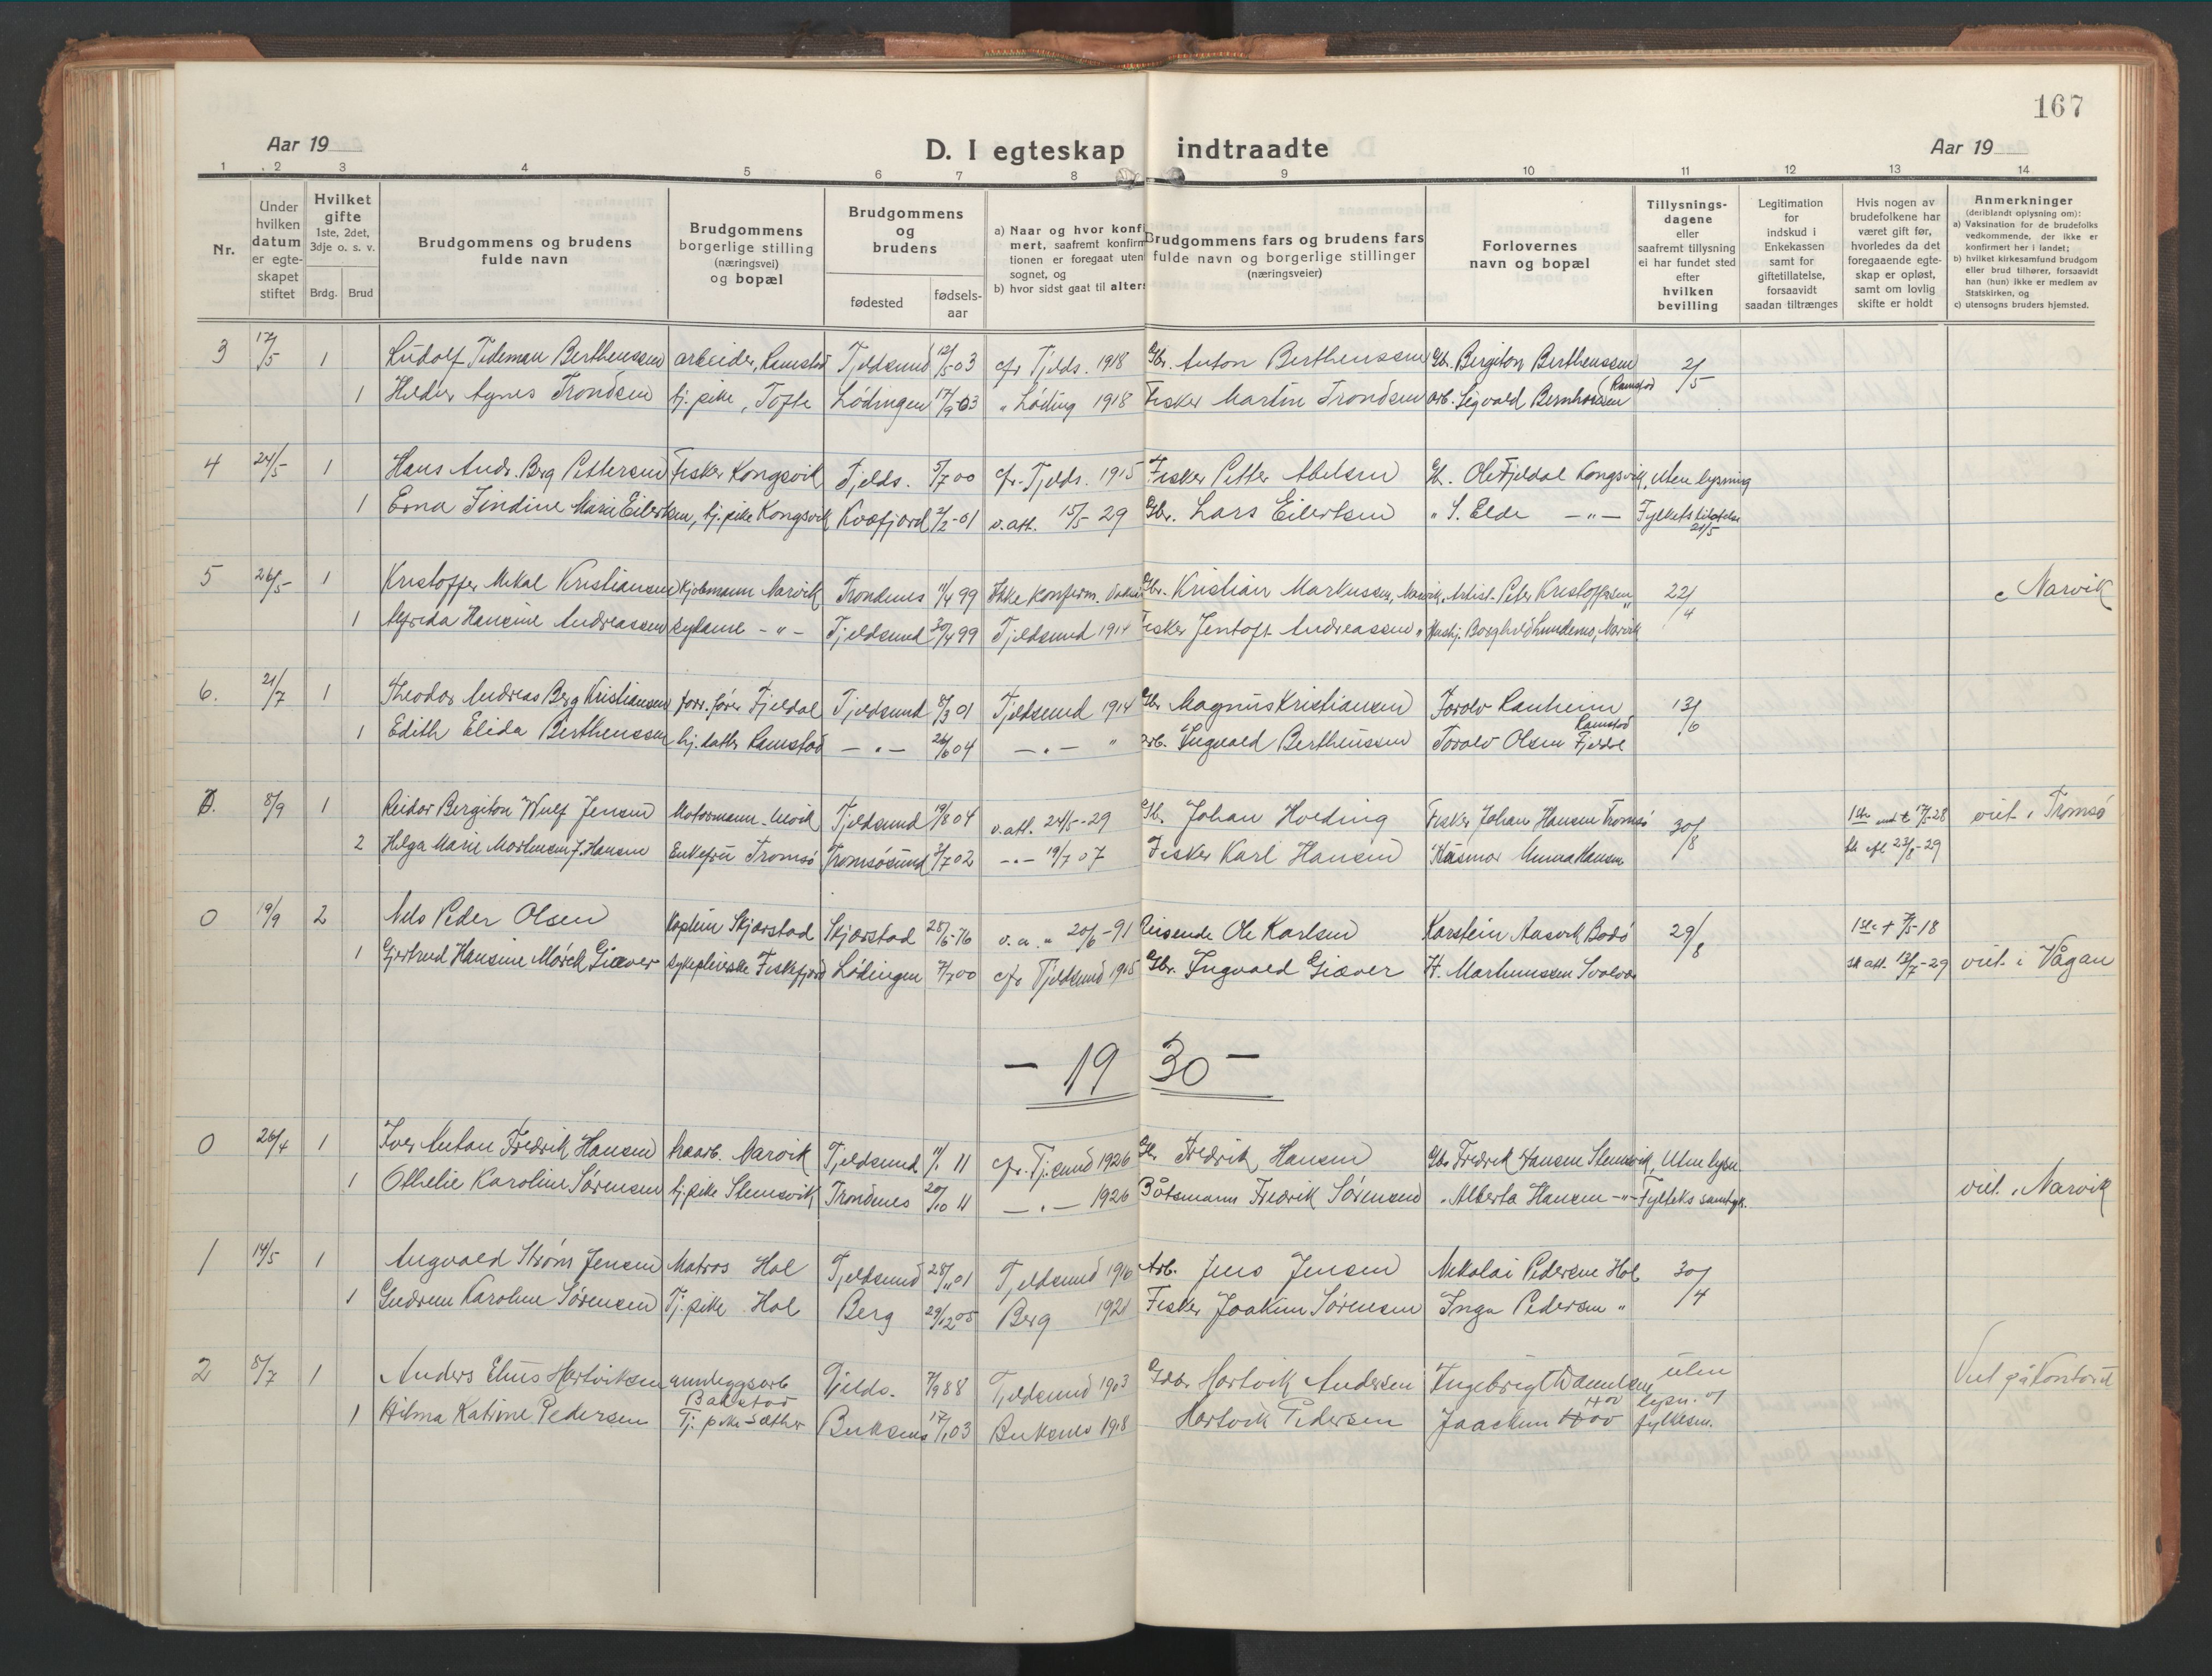 167
Aar 19
D. I egteskap indtraadte
Aar 19
1 2 3 4 5 6 7 8 9 10 11 12 13 14
Nr.
Under hvilken datum er egteskapet stiftet
Hvilket gifte 1ste, 2det, 3dje o. s. v.
Brdg. Brud
Brudgommens og brudens fulde navn
Brudgommens borgerlige stilling (næringsvei) og bopæl
Brudgommens og brudens
fødested
fødsels-aar
a) Naar og hvor konfi
mert, saafremt konfirm
tionen er foregaat uten
sognet, og
b) hvor sidst gaat til alters
Brudgommens fars og brudens fars fulde navn og borgerlige stillinger (næringsveier)
Forlovernes navn og bopæl
Tillysnings-dagene eller saafremt tillysning ei har fundet sted efter hvilken bevilling
Legitimation for indskud i Enkekassen samt for giftetillatelse, forsaavidt saadan tiltrænges
Hvis nogen av brudefolkene har været gift før, hvorledes da det foregaaende egteskap er opløst, samt om lovlig skifte er holdt
Anmerkninger
(deriblandt oplysning om):
a) Vaksination for de brudefolks vedkommende, der ikke er konfirmert her i landet;
b) hvilket kirkesamfund brudgom eller brud tilhører, forsaavidt han (hun) ikke er medlem av Statskirken, og
c) utensogns bruders hjemsted.
3 12/5 1 Ludolf Tideman Bertheussen arbeider, Ramstad Tjeldsund 12/5 03 cfr Tjelds. 1918 Gbr. Anton Bertheussen Gb. Bergiton Bertheussen 2/5
1 Agnes Trondsen tj. pike, Tofte Lødingen 17/9 03 " Løding 1918 Fisker Martin Trondsen arb. Sigvald Ramstad
4 24/5 1 Hans Andr. Berg Pettersen Fisker Kongsvik Tjelds. 5/7 00 cfr. Tjelds. 1915 Fisker Petter Abelsen Gb. Ole Fjeldal Kongsvik, Uten lysning
1 Erna Jindine Marie Eilertsen, tj. pike Kongsvik Kvæfjord 2/2-01 v. att. 15/5-29 Gbr. Lars Eilertsen " S. Elde - " - Fylkets 21/5
5 26/5 1 Kristoffer Mikal Kristiansen Narvik Trondenes 11/4 99 Ikke konfirm. Gbr. Kristian Markussen, Narvik, Peter Kristoffersen " 22/4 c Narvik
1 Alfrida Hansine Andreassen sydame - " - Tjeldsund 30/4 99 Tjeldsund 1914 Fisker Jentoft Andreassen " Borghild Lundenes, Narvik
6. 21/7 1 Theodor Andreas Berg Kristiansen forr. fører Fjeldal Tjeldsund 8/3 01 Tjeldsund 1914 Gbr Magnus Kristiansen Torolv Ranheim Ramstad 13/6
1 Edith Elida Bertheussen hj. datter Ramstad - " - 26/6 04 - " - " arb. Ingvald Bertheussen Torolv Olsen Fjeldal
8/9 1 Reidar Bergiton Wulf Jensen Motormann Tjeldsund 19/8 04 v. att. 24/5-29 Gb. Johan Hveding Fisker Johan Hansen Tromsø 30/8 17/5-28 viet i Tromsø
2 Helga Marie Mortensen f. Hansen Enkefru Tromsø Tromsøsund 3/7 02 - " - 19/7 07 Fisker Karl Hansen Husmor Hansen 23/8-29
0 19/9 2 Nils Peder Olsen Kaptein Skjærstad Skjærstad 28/5-76 v. a. " 20/6-91 Reisende Ole Karlsen Karstein Aasvik Bodø 29/8 1ste + 7/5-18
1 Gjertrud Hansine Mørch Giæver sykepleierske Fiskefjord Lødingen 7/7 00 cfr Tjeldsund 1915 Gbr. Ingvald Giæver H. Marthinussen Svolvær sk att. 12/7-29 viet i Vågan
- 19 30 -
0 26/4 1 Iver Anton Fredrik Hansen Narvik Tjeldsund 11/1 11 cfr. Tj.sund 1926 Gb. Fredrik Hansen Gbr Fredrik Hansen Stemsvik, Uten lysn.
1 Othelie Karoline Sørensen tj. pike Stemsvik Trondenes 20/10 11 - " - 1926 Båtsmann Fredrik Sørensen " Alberta Hansen - " - Fylkets samtyk. viet i Narvik
1 14/5 1 Angvald Strøm Jensen Matros Hol Tjeldsund 28/11 01 Tjeldsund 1916 Arb. Jens Jensen Nikolai Pedersen Hol 30/4
1 Gudrun Karoline Sørensen Tj. pike Hol Berg 29/12 05 Berg 1921 Fisker Joakim Sørensen Inga Pedersen "
2 8/7 1 Anders Elius Hartviksen annleggsarb Bakstad Tjelds. 7/9 88 Tjeldsund 1903 Gdbr. Hartvik Andersen Ingebrigt Danielsen Hov uten lysn. v/
1 Hilma Katrine Pedersen Tj. pike Sæther Buksnes 17/1 03 Buksnes 1918 Hartvik Pedersen Joackim Hov fylkesm. Viet på Kontoret